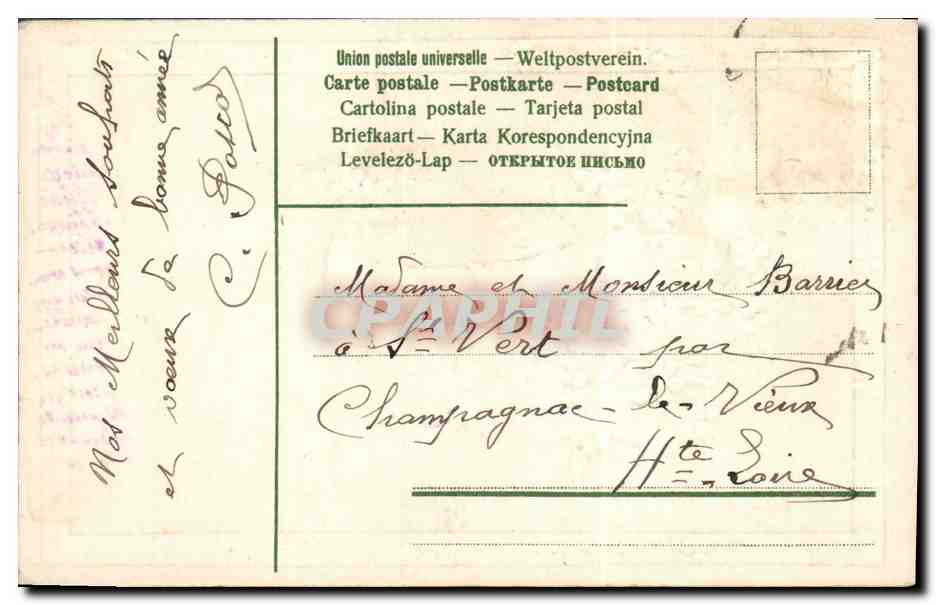 Union postale universelle — Weltpostverein.
Carte postale — Postkarte — Postcard
Cartolina postale — Tarjeta postal
Briefkaart — Karta Korespondencyjna
Levelező-Lap — ОТКРЫТОЕ ПИСЬМО
Nos Meilleurs souhaits
et voeux de bonne année
C.
Madame et Monsieur Barrier
à St Vert par
Champagnac-le-Vieux
Hte-Loire
CPAPHIL